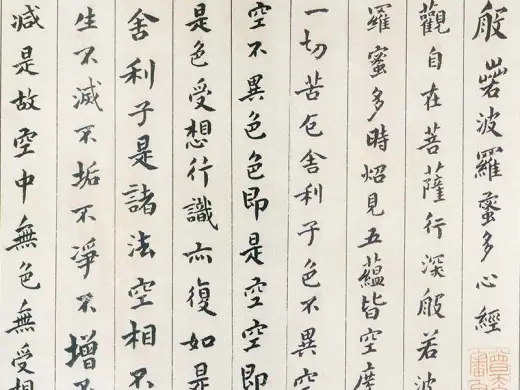 般若波羅蜜多心經
觀自在菩薩行深般若波
羅蜜多時炤見五蘊皆空度
一切苦厄舍利子色不異空
空不異色色即是空空即
是色受想行識亦復如是
舍利子是諸法空相不
生不滅不垢不淨不增不
減是故空中無色無受想